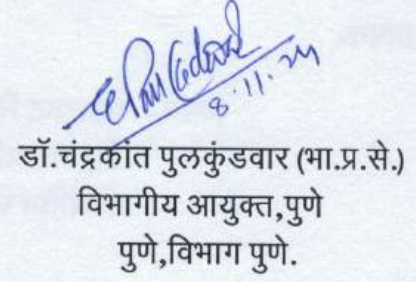 8.11.24
डॉ.चंद्रकांत पुलकुंडवार (भा.प्र.से.)
विभागीय आयुक्त,पुणे
पुणे,विभाग पुणे.